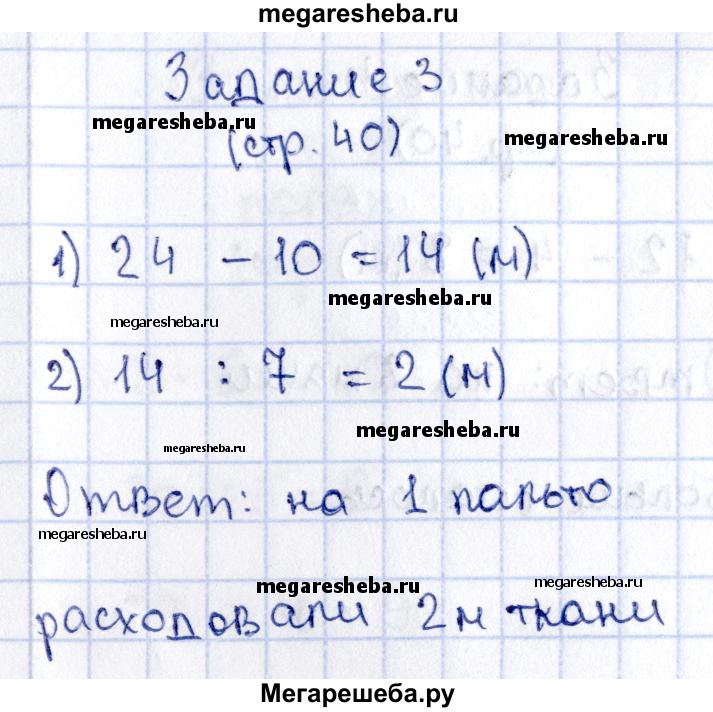 megaresheba.ru
Задание 3
megaresheba.ru
(стр. 40)
megaresheba.ru
1) 24 - 10 = 14 (м)
megaresheba.ru
megaresheba.ru
2) 14 : 7 = 2 (м)
megaresheba.ru
megaresheba.ru
Ответ: на 1 пальто
megaresheba.ru
megaresheba.ru
megaresheba.ru
расходовали 2м ткани
Мегарешеба.ру